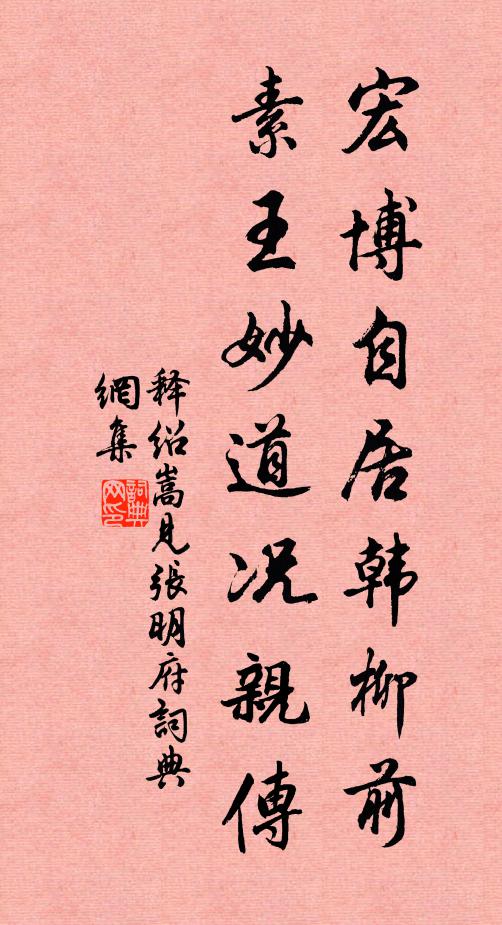 宏博自居韩柳前
素王妙道况親傳
释绍嵩見張明府詞典
網集
詞典網印